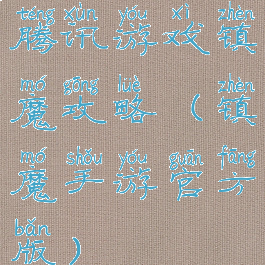 téng xùn yóu xì zhèn
腾讯游戏镇
mó gōng lüè zhèn
魔攻略(镇
mó shǒu yóu guān fāng
魔手游官方
bǎn
版)